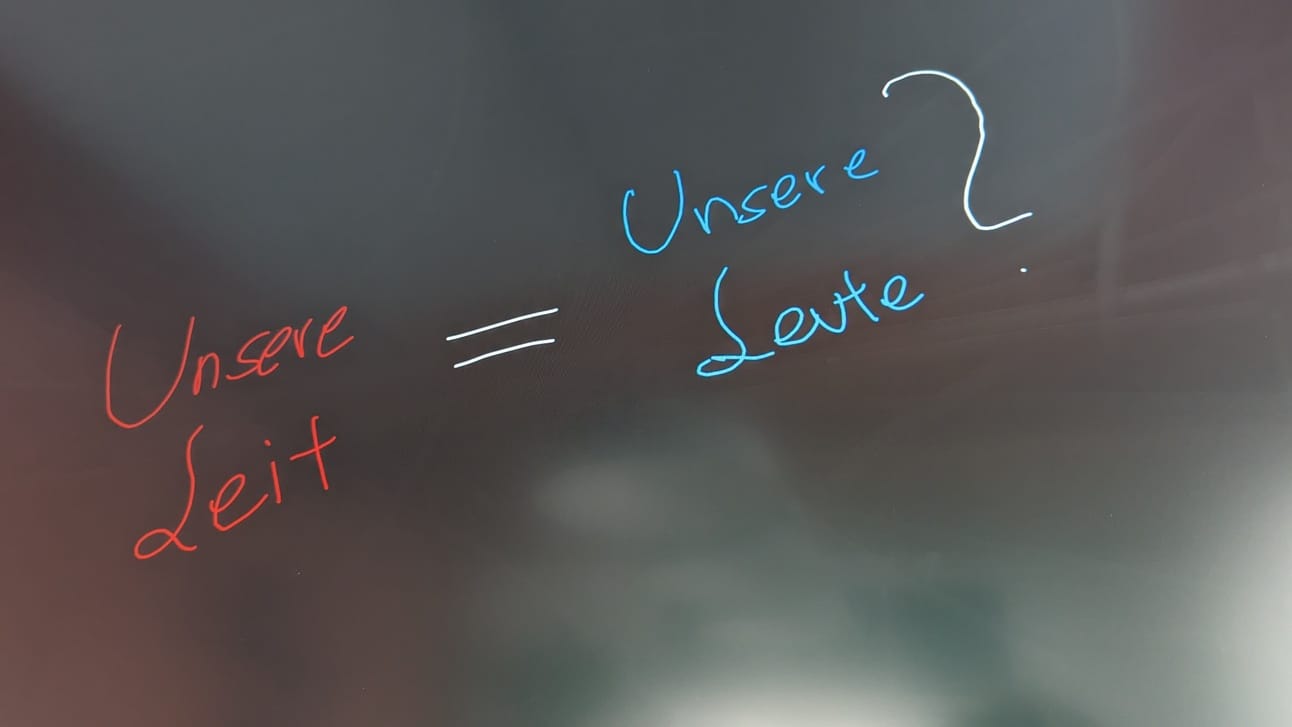 Unsere
Leit
=
Unsere
Leute
?